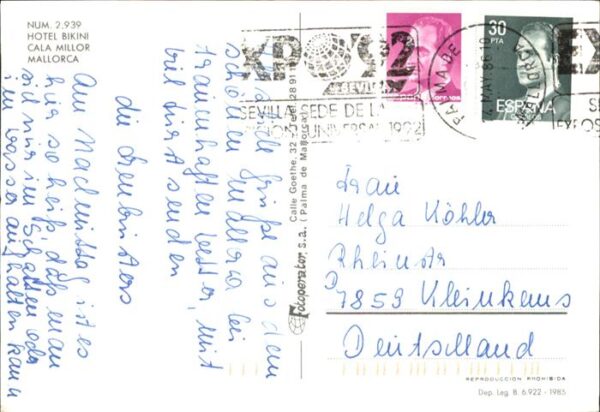 NUM. 2.939
HOTEL BIKINI
CALA MILLOR
MALLORCA
EXPO'92
SEVILLA
SEVILLA SEDE DE LA
UNIVERSAL 1992
30
PTA
ESPAÑA
correos
PALMA DE
MALLORCA
Grüße aus dem
schönen Mallorca bei
traumhaften Wetter, mit
viel
senden
die
Am Nachmittag ist es
hier so heiß, daß man
sich nur im Schatten oder
im Wasser aufhalten kann
Fotoperator, s.a. Calle Goethe, 32
( Palma de Mallorca )
Frau
Helga Köhler
Rheinstr
7859 Kleinkems
Deutschland
REPRODUCCION PROHIBIDA
Dep. Leg. B. 6.922 - 1985